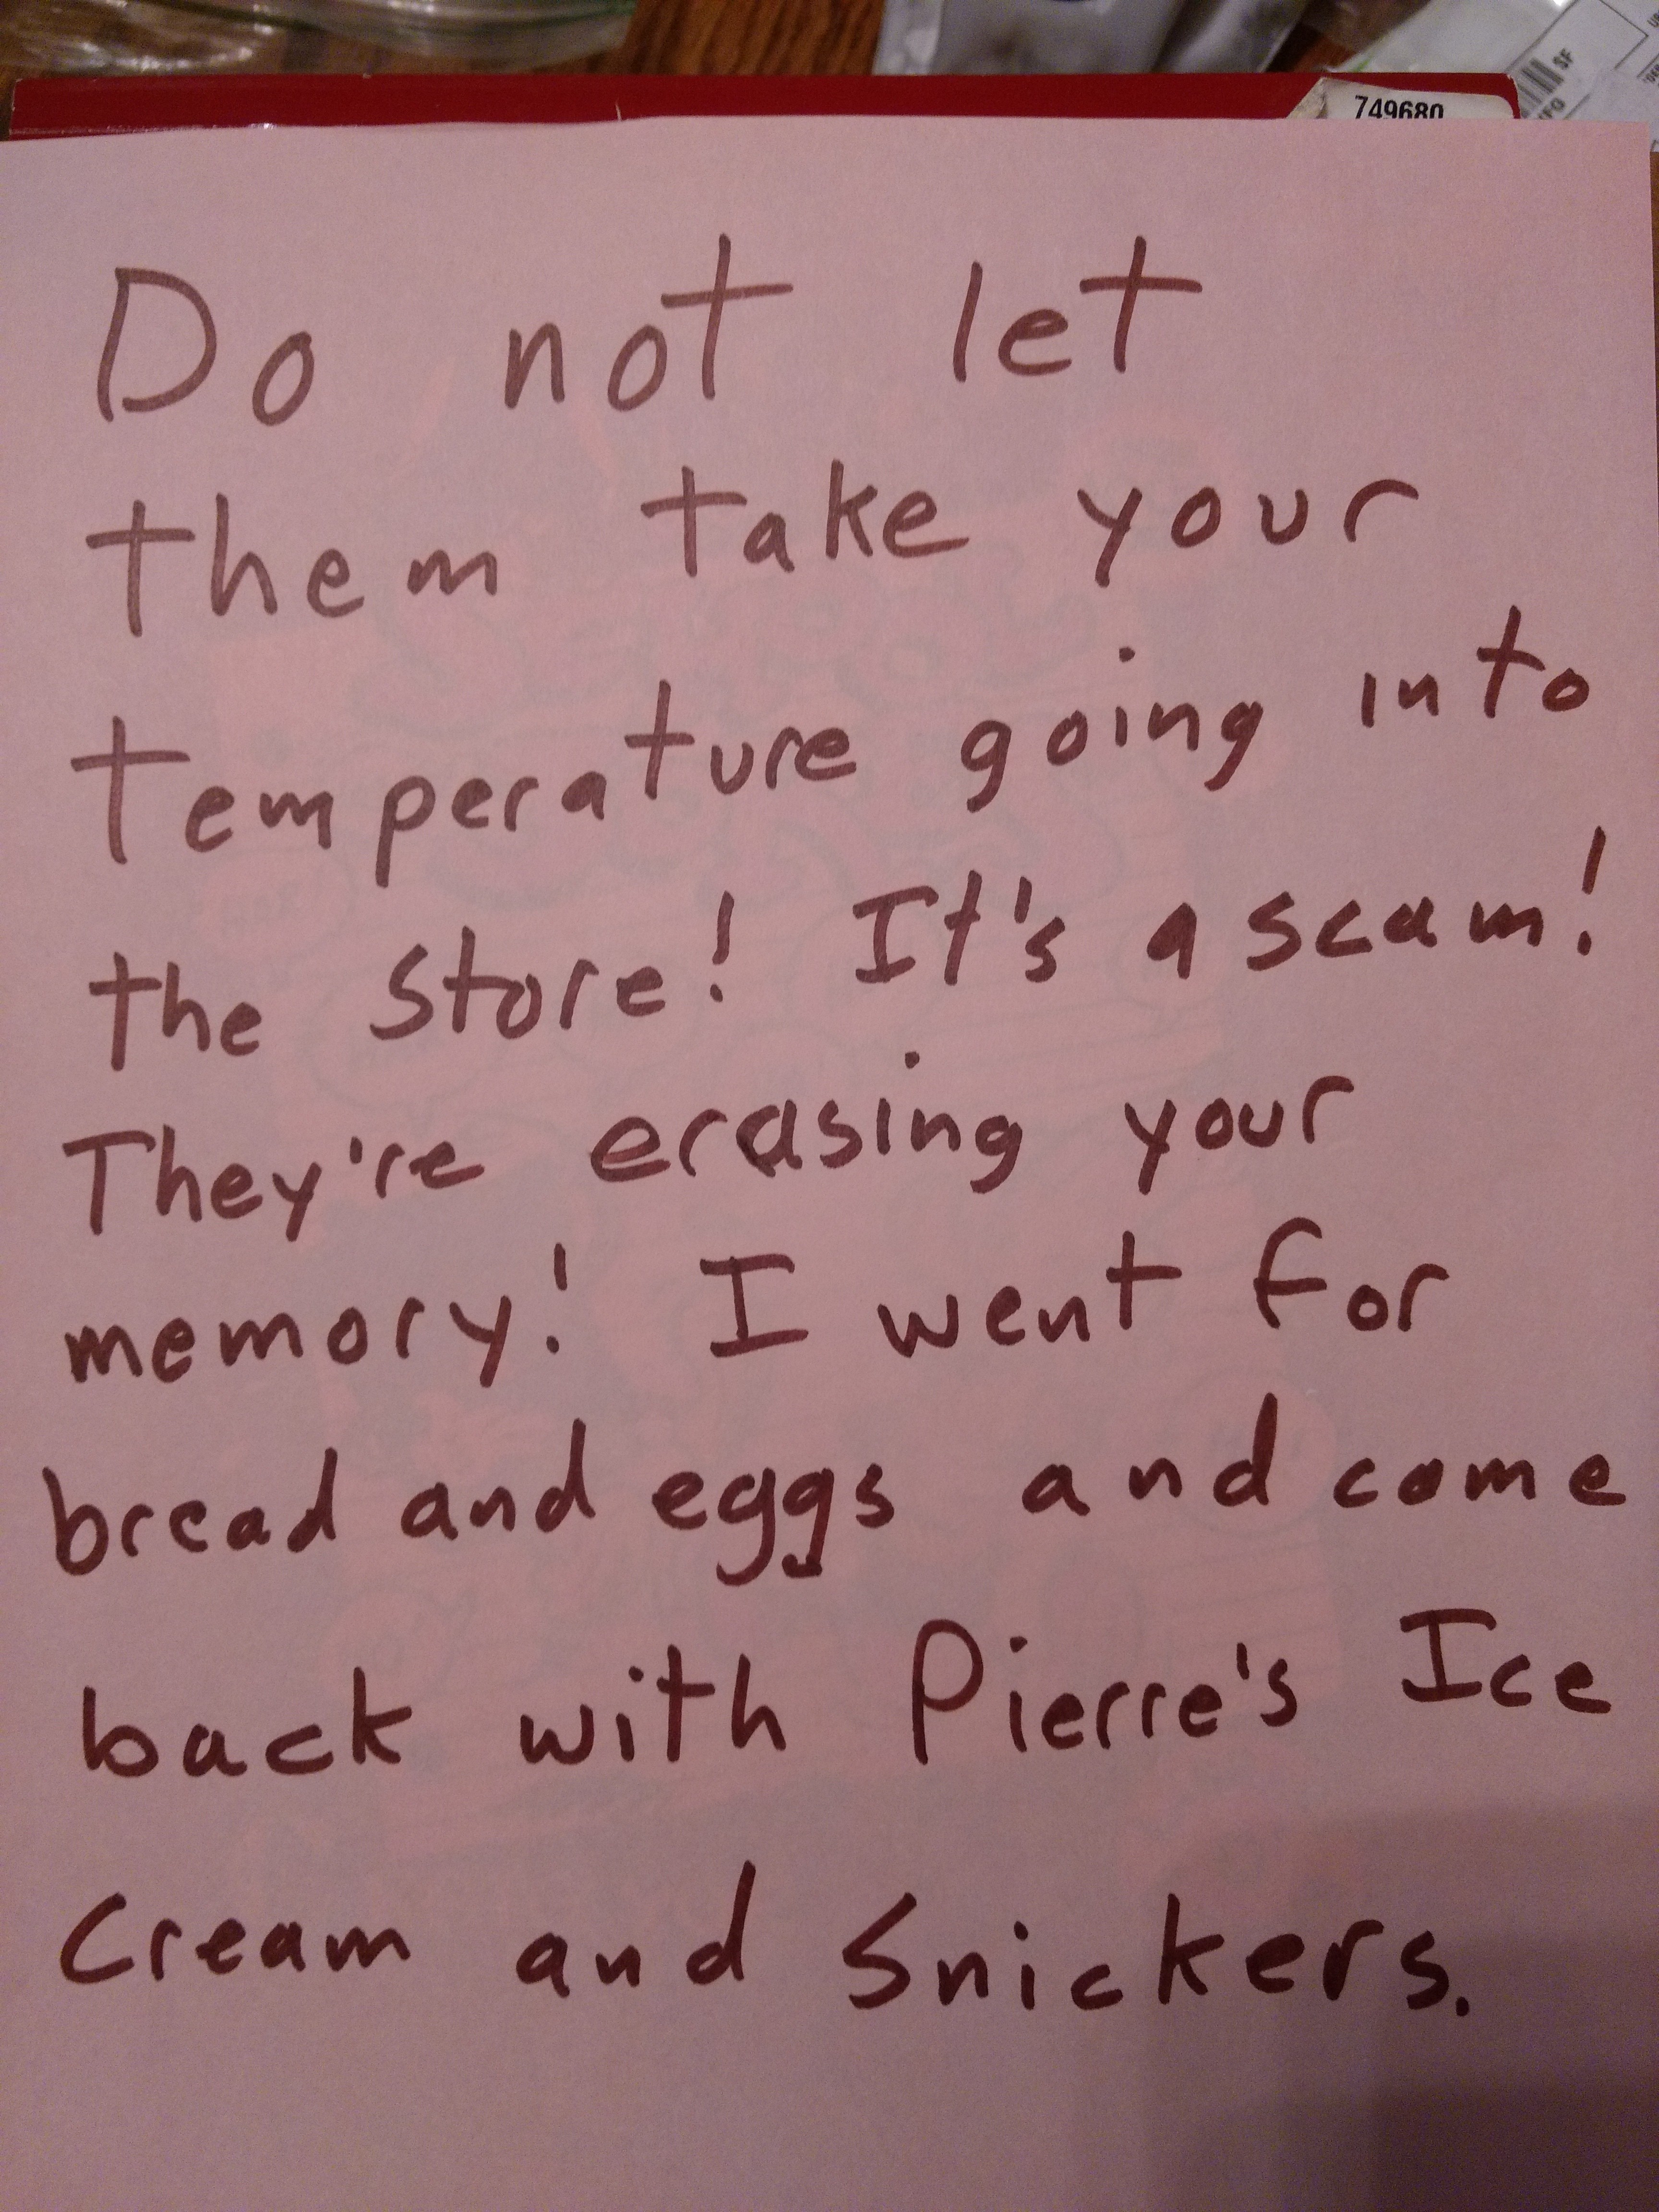 749680
SF
Do not let
them take your
temperature going into
the store! It's a scam!
They're erasing your
memory! I went for
bread and eggs and come
back with Pierre's Ice
Cream and Snickers.